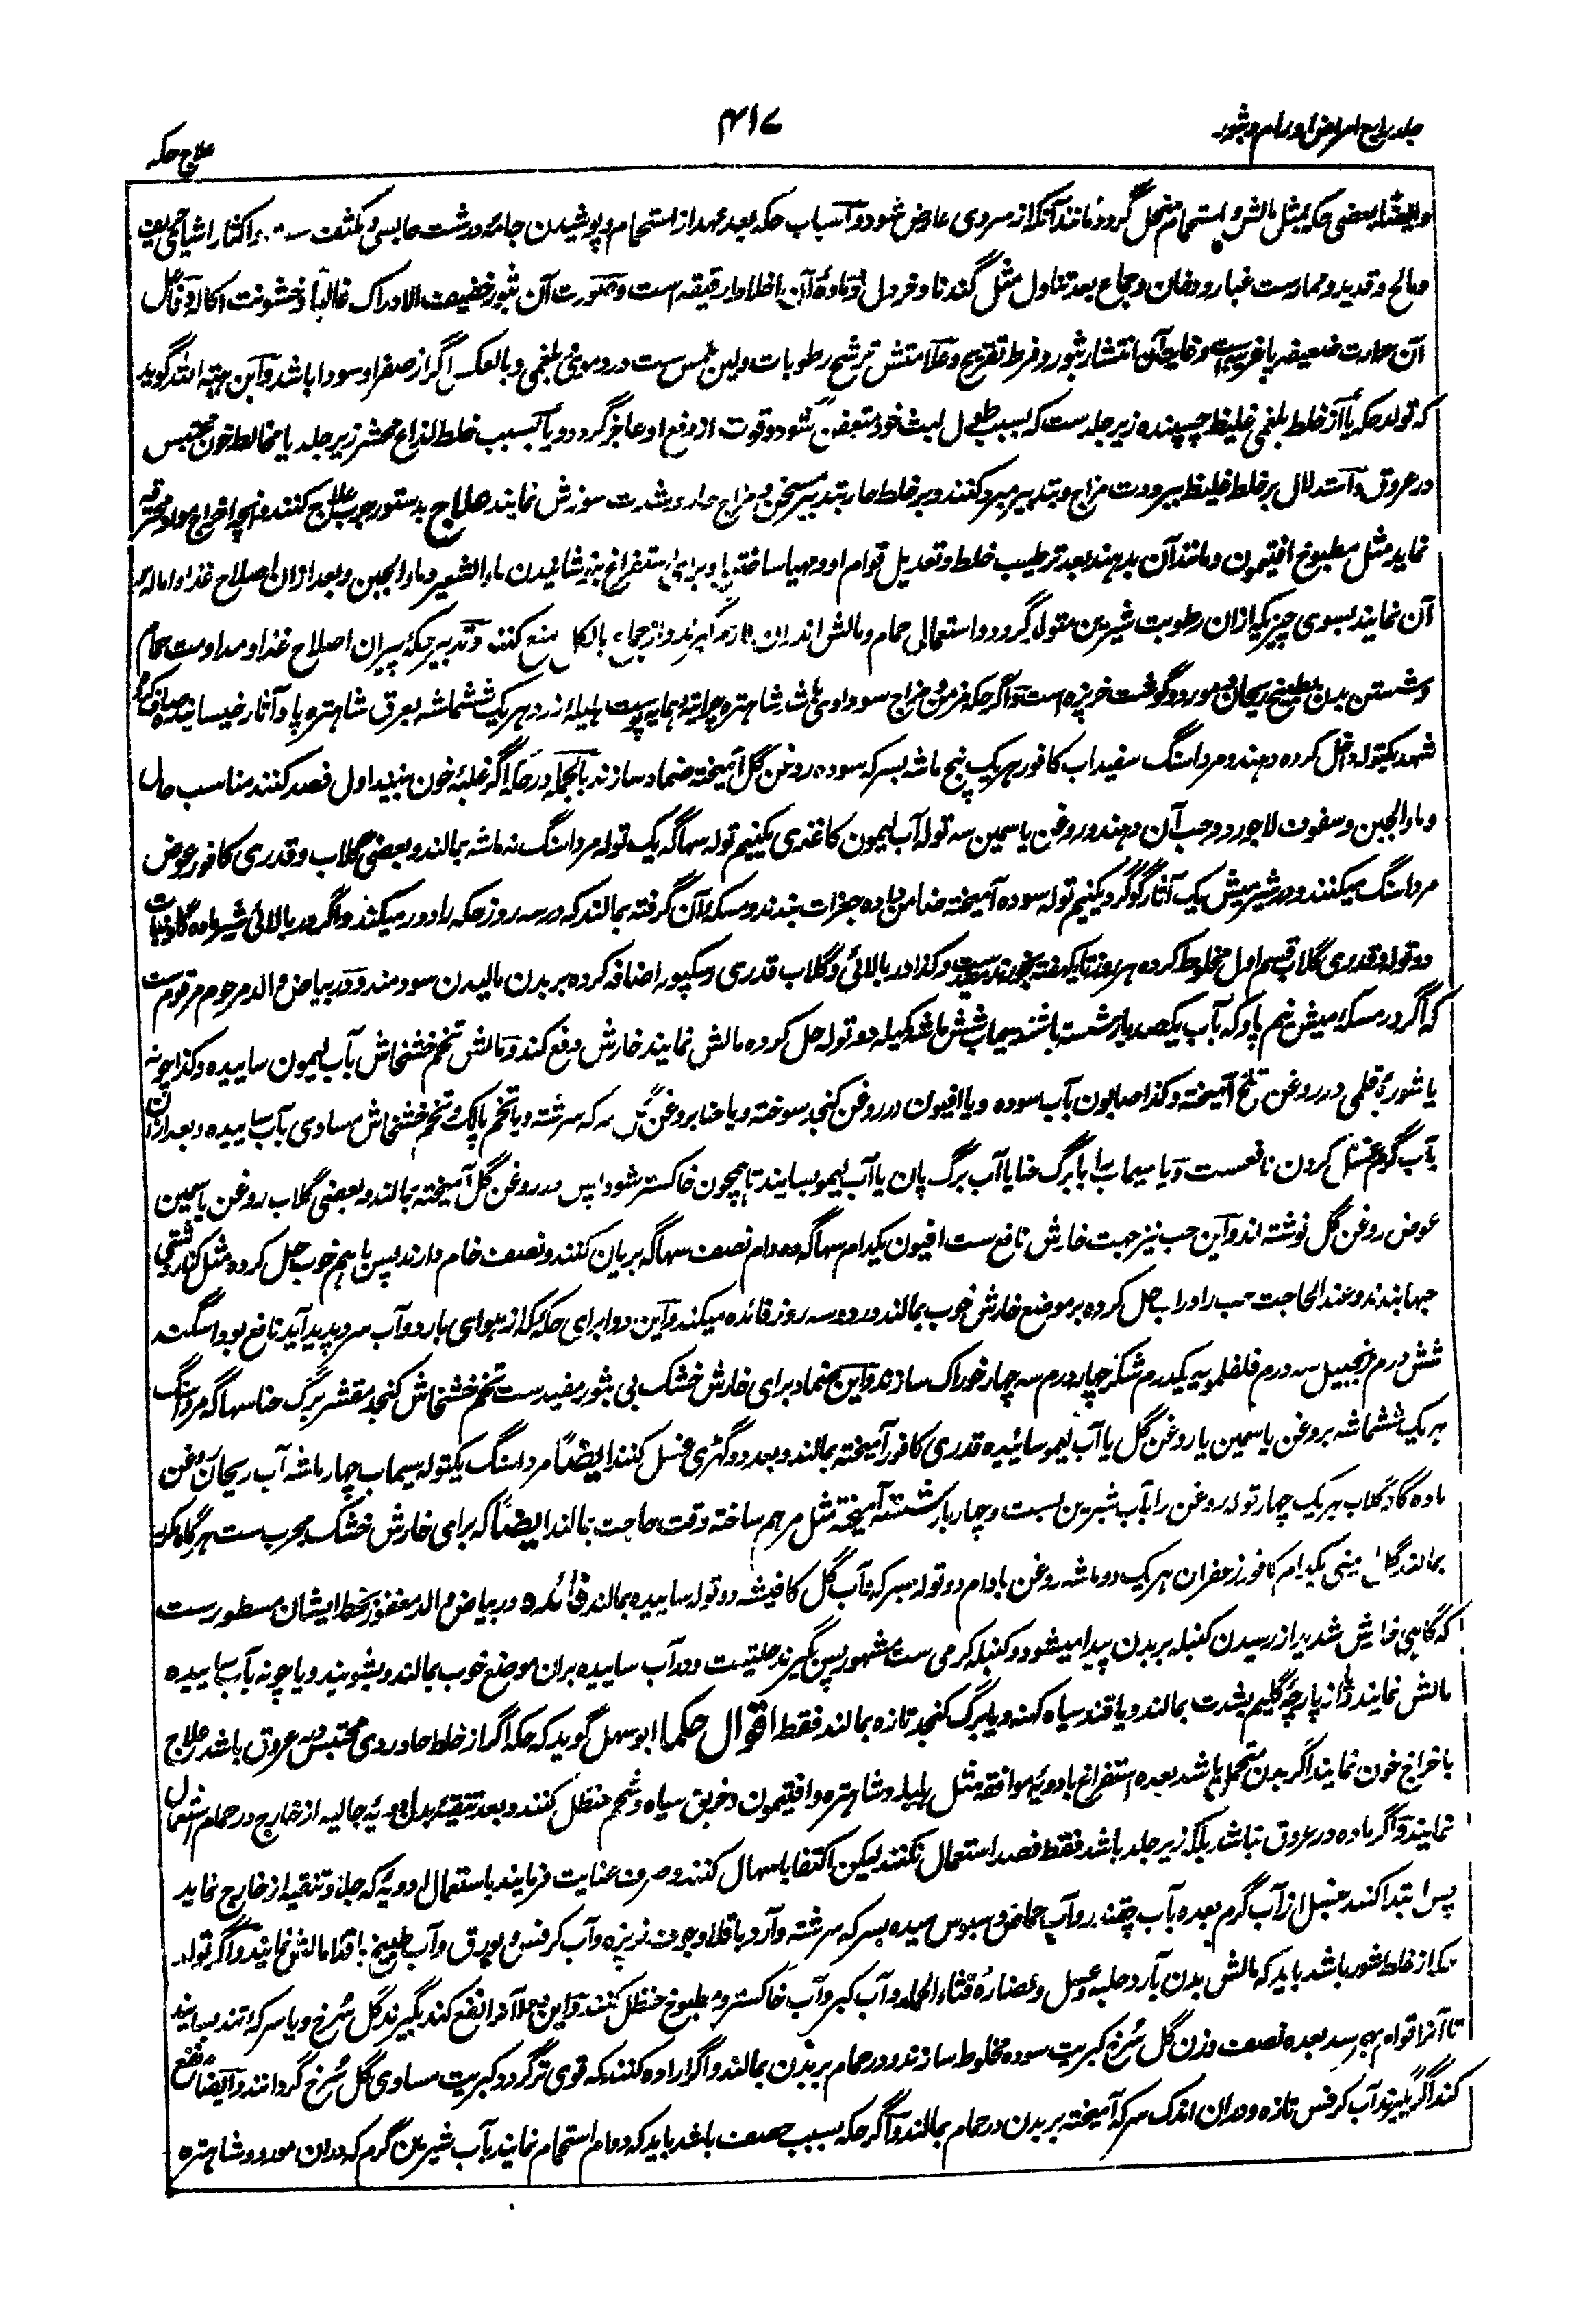 جلد رابع امراض اورام و بثور
۴۱۷
علاج حکه
وایضاً بعضی حکه بمثل مالش و استحمام منحل گردد مانند آنکه از سردی عارض شود و اسباب حکه بعد عهد از استحمام و پوشیدن جامه درشت حابس و کثیف است و اکثار اشیای حریف
و مالح و قدید و ممارست غبار و دخان و جماع بعد تناول مثل گندنا و خردل و ماده آن اخلاط رقیقه است و صورت آن بثور خفیف الادراک غالباً و خشونت اکال و فاعل
آن حرارت ضعیفه یا غریبه است و غایت آن انتشار بثور و فرط تقریح و علامتش ترشح رطوبات و لین ملمس ست در دموی و بلغمی و بالعکس اگر از صفرا و سودا باشد و ابن هبة الله گوید
که تولد حکه یا از خلط بلغمی غلیظ چسپنده زیر جلد ست که بسبب طول لبث خود متعفن شود و قوت از دفع او عاجز گردد و یا بسبب خلط لذاع منحشر زیر جلد یا مخالط خون محتبس
در عروق و استدلال بر خلط غلیظ ببرودت مزاج و بتدبیر مبرد کنند و بر خلط حار بتدبیر مسخن و مزاج حار و شدت سوزش نمایند علاج بدستور جرب علاج کنند و آنچه اخراج مواد محترقه
نماید مثل مطبوخ افتیمون و مانند آن بدهند بعد ترطیب خلط و تعدیل قوام او و مهیا ساختن او برای استفراغ بنوشانیدن ماء الشعیر و ماء الجبن و بعد ازان اصلاح غذا و اماله
آن نمایند بسوی چیزیکه ازان رطوبت شیرین متولد گردد و استعمال حمام و مالش اندران لازم گیرند و از جماع بالکل منع کنند و تدبیر حکهٔ پیران اصلاح غذا و مداومت حمام
و شستن بدن بطبیخ ریحان و مورد و گوشت خرپزه است و اگر حکه مزمن و مزاج سوداوی باشد شاهتره چرائته پوست هلیلهٔ زرد هر یک ششماشه بعرق شاهتره پاو آثار خیسانیده صاف کرده
شهد یکتوله داخل کرده دهند و مرداسنگ سفیداب کافور هر یک پنج ماشه بسرکه سوده روغن گل آمیخته ضماد سازند بالجمله در حکه اگر غلبهٔ خون بینند اول فصد کنند مناسب حال
و ماء الجبن و سفوف لاجورد و حب آن دهند و روغن یاسمین سه توله آب لیمون کاغذی یکنیم توله سهاگه یک توله مرداسنگ نه ماشه بمالند و بعضی گلاب و قدری کافور عوض
مرداسنگ میکنند و در شیر میش یک آثار گوگرد یکنیم توله سوده آمیخته ضامن داده جغرات بندند و مسکهٔ آن گرفته بمالند که در سه روز حکه را دور میکند و اگر در بالائی شیر ماده گاو نبات
دو توله و قدری گلاب قسم اول مخلوط کرده هر روز تا یکهفته بخورند و کذا در بالائی و گلاب قدری رسکپور اضافه کرده بر بدن مالیدن سودمند و در بیاض والد مرحوم مرقوم ست
که اگر در مسکهٔ میش نیم پاو که بآب یکصد بار شسته باشند سیماب شش ماشه کمیله دو توله حل کرده مالش نمایند خارش دفع کند و مالش تخم خشخاش بآب لیمون ساییده و کذا چونه
یا شورهٔ قلمی در روغن تلخ آمیخته و کذا صابون بآب سوده و یا افیون در روغن کنجد سوخته و یا حنا بروغن گل سرکه سرشته و یا تخم پالک و تخم خشخاش مساوی بآب ساییده و بعد ازان
بآب گرم غسل کردن نافعست و یا سیماب را با برگ حنا یا آب برگ پان یا آب لیمو بسایند تا همچون خاکستر شود پس در روغن گل آمیخته بمالند و بعضی گلاب روغن یاسمین
عوض روغن گل نوشته اند و این حب نیز جهت خارش نافع ست افیون یکدام سهاگه دو دام نصف سهاگه بریان کنند و نصف خام دارند پس باهم خوب حل کرده مثل کنار دشتی
حبها بندند و عند الحاجت حب را در آب حل کرده بر موضع خارش خوب بمالند در دو سه روز فائده میکند و این دوا برای حکه که از هوای بارد و آب سرد پدید آید نافع بود اسگند
شش درم زنجبیل سه درم فلفلمویه یکدرم شکر چهار درم سه چهار خوراک سازند و این ضماد برای خارش خشک بی بثور مفید ست تخم خشخاش کنجد مقشر برگ حنا سهاگه مرداسنگ
هر یک ششماشه بروغن یاسمین یا روغن گل یا آب لیمو سائیده قدری کافور آمیخته بمالند و بعد دو گهڑی غسل کنند ایضاً مرداسنگ یکتوله سیماب چهار ماشه آب ریحان روغن
ماده گاو گلاب هر یک چهار توله روغن را بآب شیرین بست و چهار بار شسته آمیخته مثل مرهم ساخته وقت حاجت بمالند ایضاً که برای خارش خشک مجرب ست هرگاه مکرر
بمالند گل ارمنی یکدام کافور زعفران هر یک دو ماشه روغن بادام دو توله بسرکه و آب گل کافیشه دو توله ساییده بمالند فائده در بیاض والد مغفور بخط ایشان مسطور ست
که گاهی خارش شدید از رسیدن کنبله بر بدن پیدا میشود و کنبله کرمی ست مشهور پس بگیرند حلتیت و در آب ساییده بران موضع خوب بمالند و بشویند و یا چونه بآب ساییده
مالش نمایند و از پارچهٔ گلیم بشدت بمالند و یا قند سیاه کهنه و یا برگ کنجد تازه بمالند فقط اقوال حکما ابو سهل گوید که حکه اگر از خلط حاد ردی محتبس در عروق باشد علاج
باخراج خون نمایند اگر بدن متحمل باشد بعده استفراغ بادویهٔ موافقه مثل هلیله و شاهتره و افتیمون و خربق سیاه و شحم حنظل کنند و بعد تنقیهٔ بدل ادویهٔ جالیه از خارج در حمام استعمال
نمایند و اگر ماده در عروق نباشد بلکه زیر جلد باشد فقط فصد استعمال نکنند لیکن اکتفا باسهال کنند و صرف عنایت فرمایند باستعمال ادویه که جلا و تنقیه از خارج نماید
پس ابتدا کنند بغسل از آب گرم بعده بآب چقندر و آب حماض و سبوس میده بسرکه سرشته و آرد باقلا و جوف خرپزه و آب کرفس و بورق و آب طبیخ باقلا مالش نمایند و اگر تولد
حکه از خلط شور باشد باید که مالش بدن بآرد حلبه و عسل و عصارهٔ قثاء الحمار و آب کبر و آب خاکستر و مطبوخ حنظل کنند و این دوا آنرا نفع کند بگیرند گل سرخ و یا سرکه تند بسایند
تا آنرا قوام بهم رسد بعده نصف وزن گل سرخ کبریت سوده مخلوط سازند و در حمام بر بدن بمالند و اگر اراده کنند که قوی تر گردد کبریت مساوی گل سرخ گردانند و ایضاً نفع
کند اگر بگیرند آب کرفس تازه و دران اندک سرکه آمیخته بر بدن در حمام بمالند و اگر حکه بسبب ضعف باشد باید که دوام استحمام نمایند بآب شیرین گرم که دران مورد و شاهتره